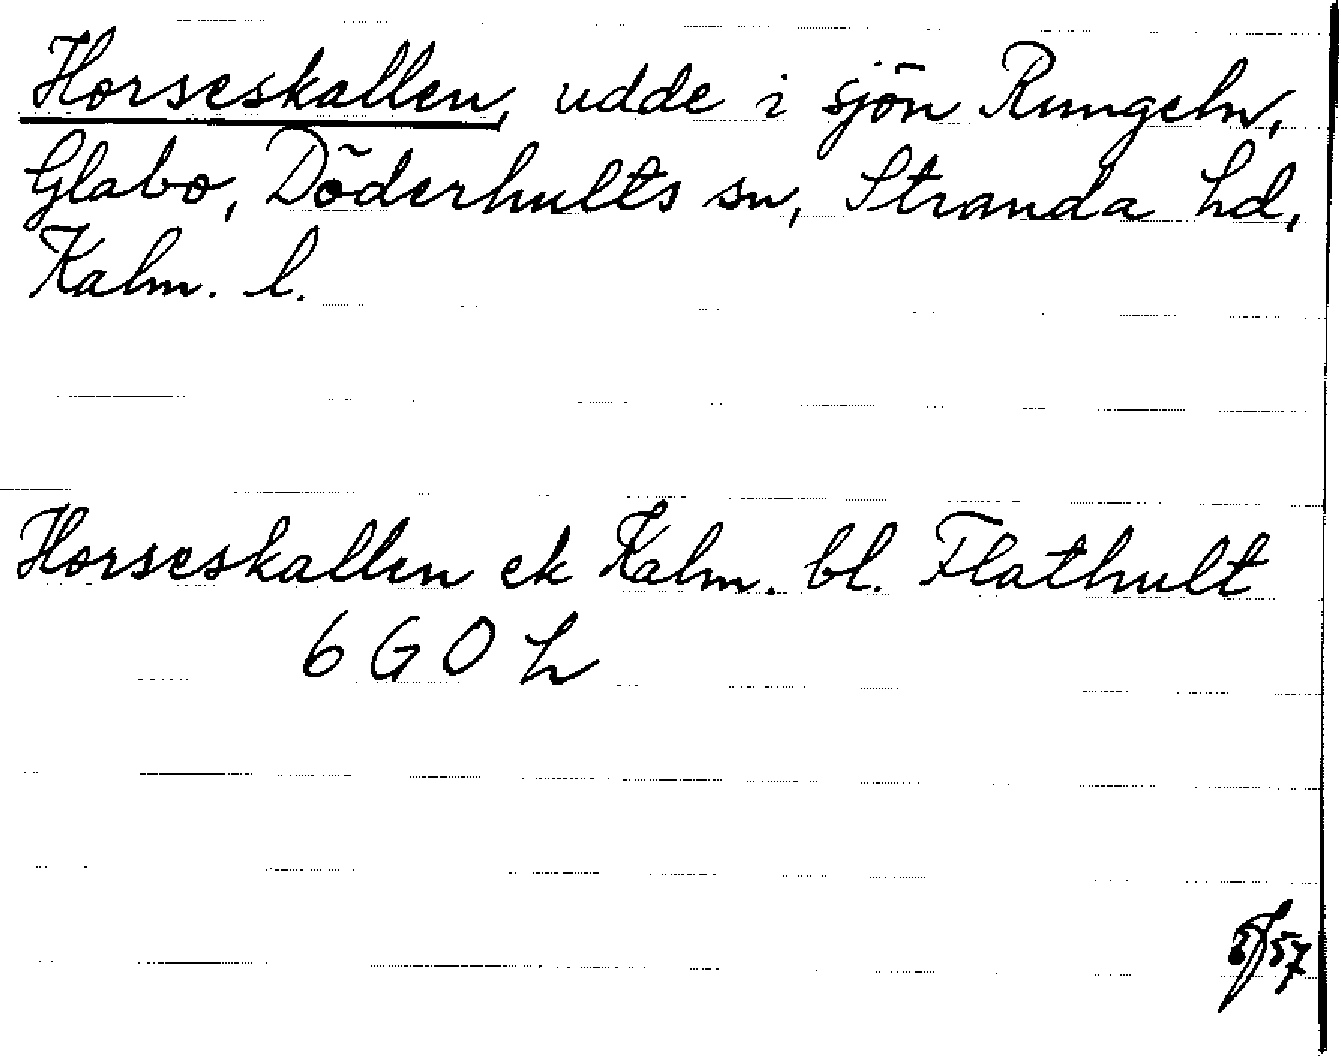 Horseskallen, udde i sjön Rungeln,
Glabo, Döderhults sn, Stranda hd,
Kalm. l.
Horseskallen ek Kalm. bl. Flathult
6 G O h